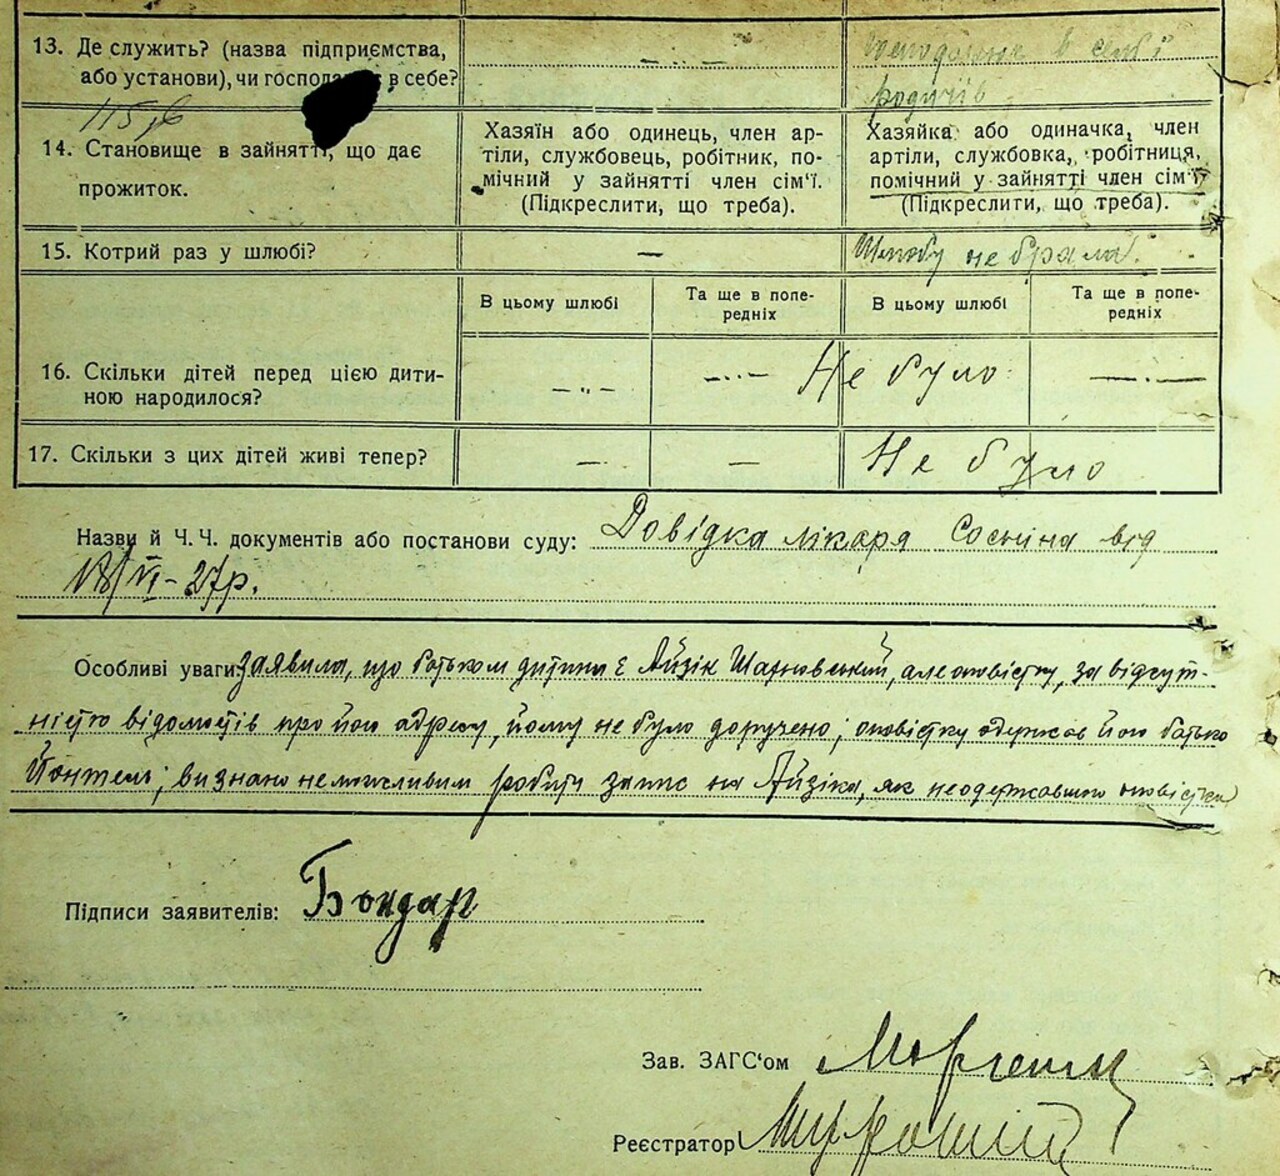 13. Де служить? (назва підприємства, або установи), чи господарює в себе?
— ·· —
господарює в сем'ї родичів
115
14. Становище в зайнятті, що дає прожиток.
Хазяїн або одинець, член артіли, службовець, робітник, помічний у зайнятті член сім'ї. (Підкреслити, що треба).
Хазяйка або одиначка, член артіли, службовка, робітниця, помічний у зайнятті член сім'ї (Підкреслити, що треба).
15. Котрий раз у шлюбі?
—
Шлюбу не брала.
В цьому шлюбі
Та ще в попередніх
В цьому шлюбі
Та ще в попередніх
16. Скільки дітей перед цією дитиною народилося?
— " —
— ·· —
Не було
— · —
17. Скільки з цих дітей живі тепер?
—
—
Не було
Назви й Ч. Ч. документів або постанови суду: Довідка лікаря від
18/VI – 27р.
Особливі уваги: Заявила, що батьком дитини є Айзік але оповістку, за відсут-
ністю відомостів про його адресу, йому не було доручено; оповістку одержав його батько
визнано неможливим робити запис на Айзіка, як неодержавшого оповістки
Підписи заявителів: Бондар
Зав. ЗАГС'ом
Реєстратор